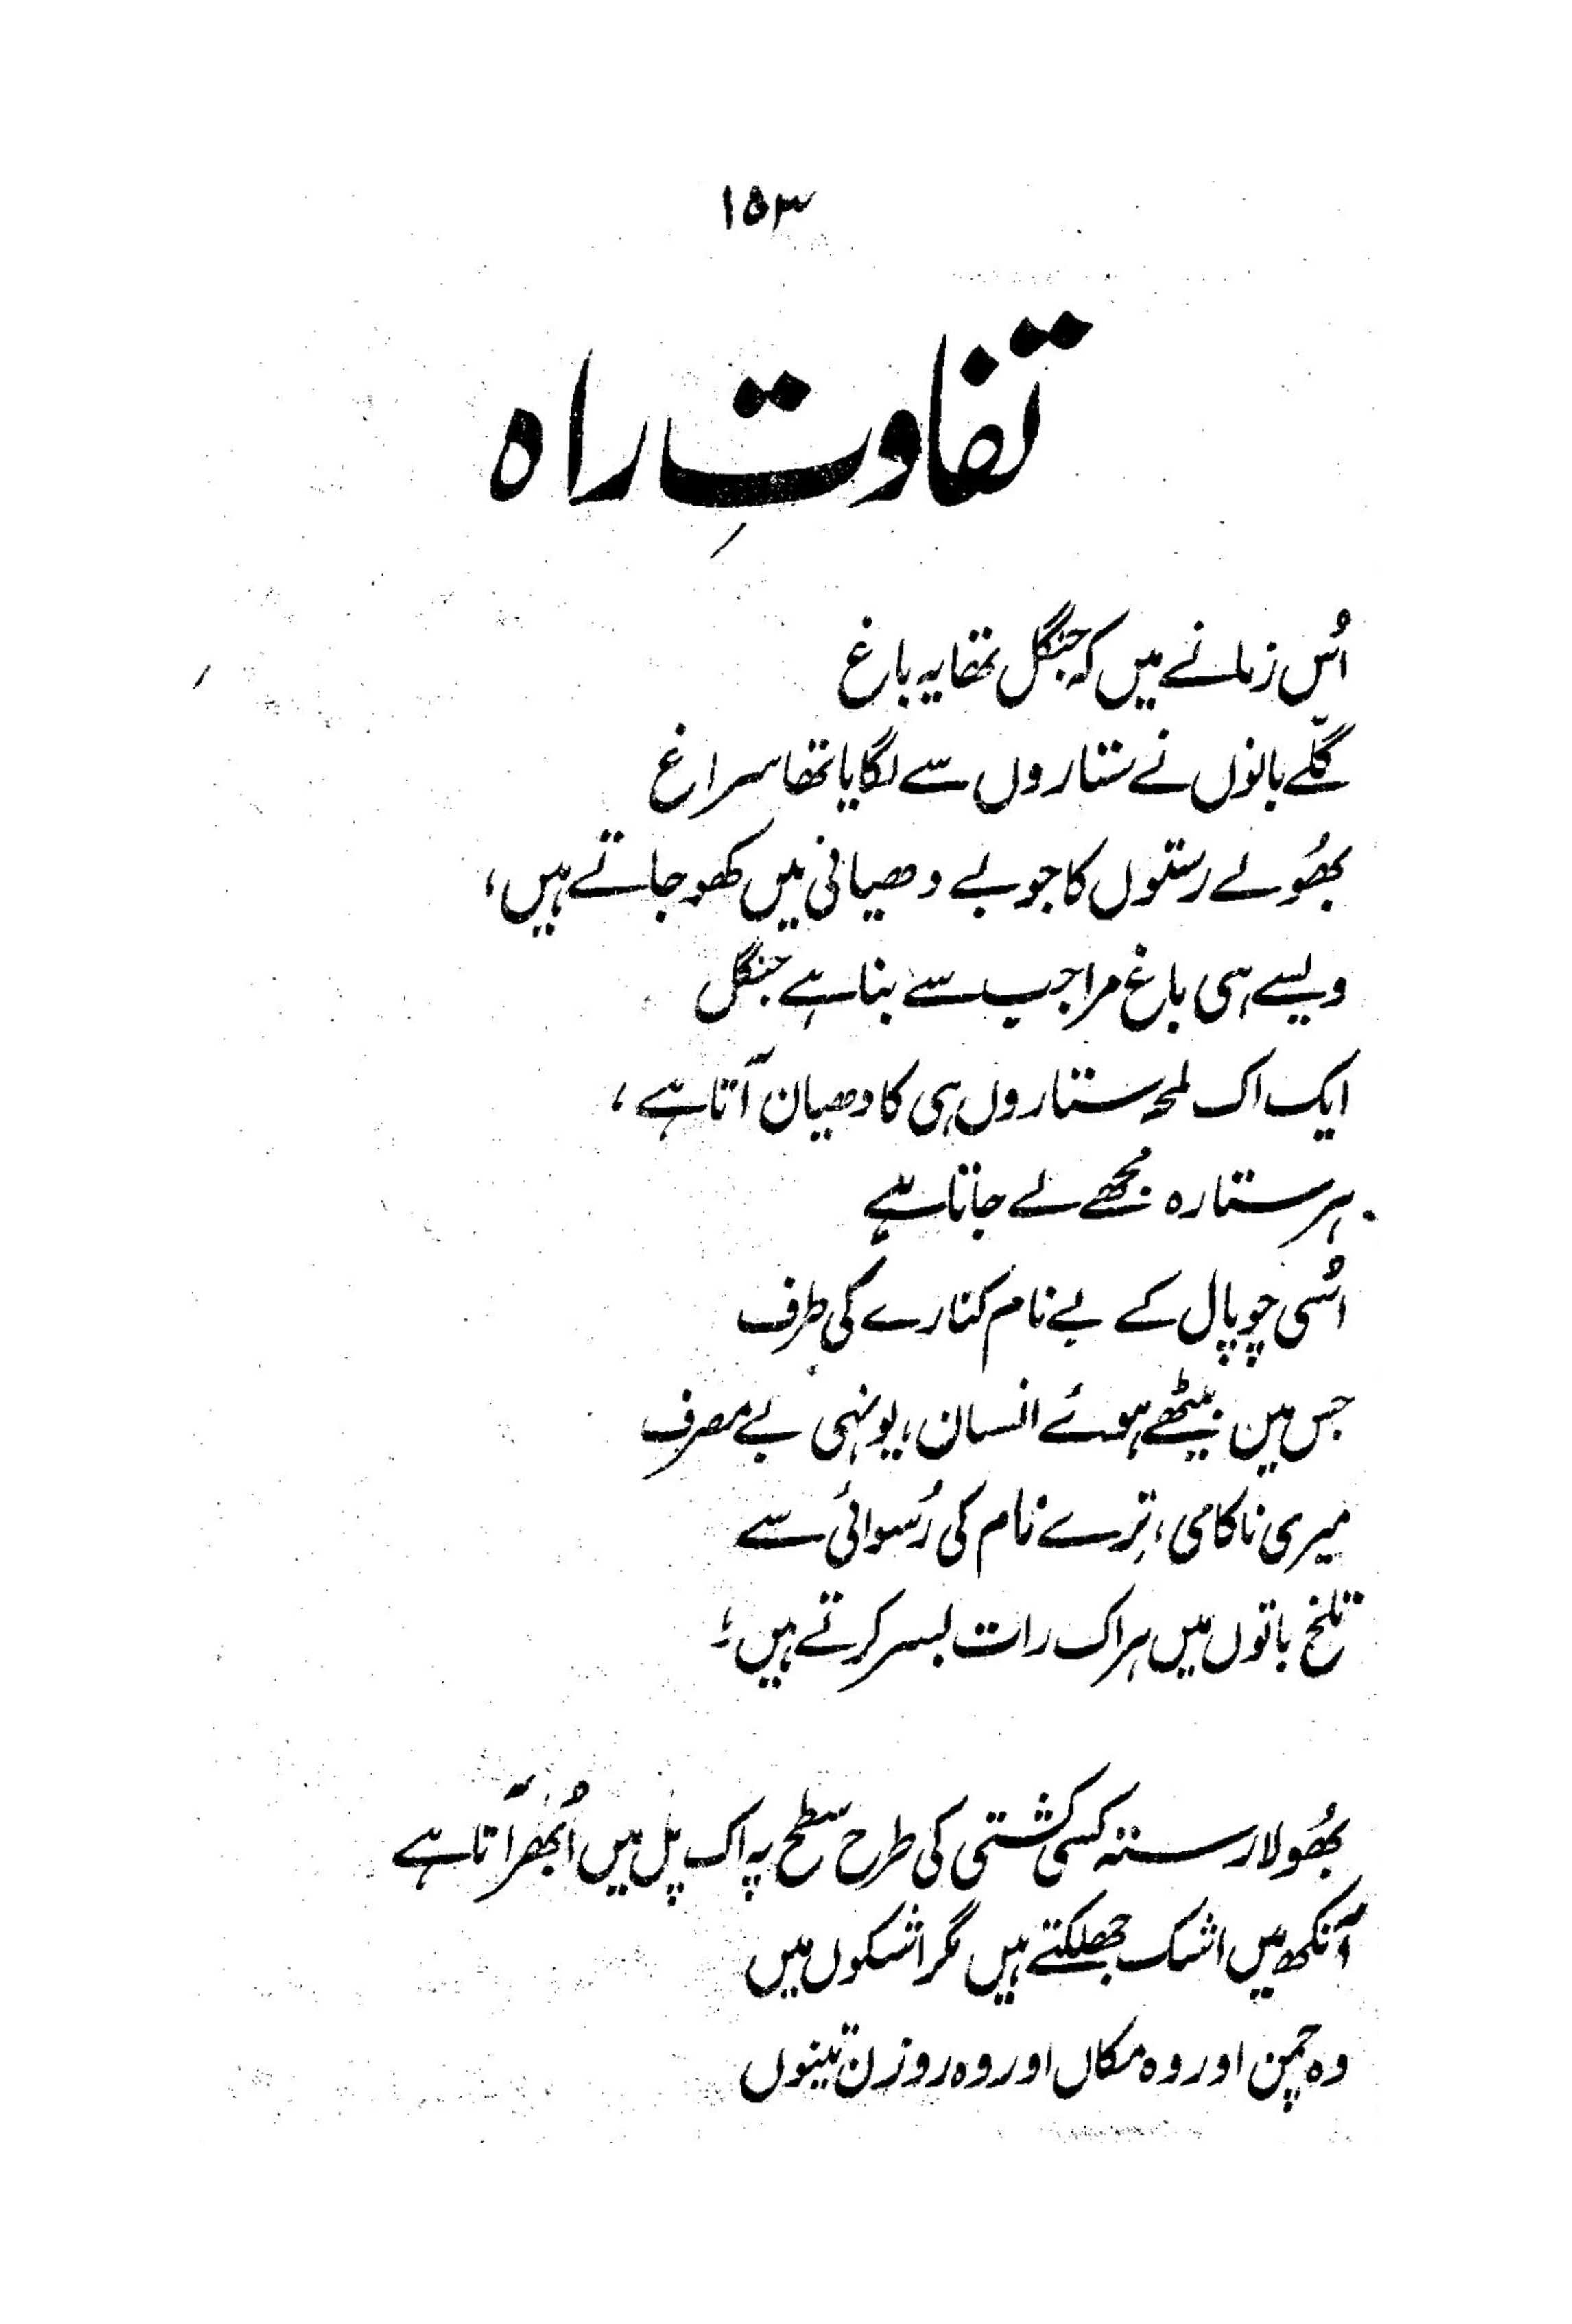 ۱۵۳
تفاوتِ راہ
اُس زمانے میں کہ جنگل تھا یہ باغ
گلّے بانوں نے ستاروں سے لگایا تھا سراغ
بھُولے رستوں کا جو بے دھیانی میں کھو جاتے ہیں،
ویسے ہی باغ مرا جب سے بنا ہے جنگل
ایک اک لمحہ ستاروں ہی کا دھیان آتا ہے،
ہر ستارہ مُجھے لے جاتا ہے
اُسی چوپال کے بے نام کنارے کی طرف
جس میں بیٹھے ہوئے انسان، یونہی بے مصرف
میری ناکامی، تِرے نام کی رُسوائی سے
تلخ باتوں میں ہر اک رات بسر کرتے ہیں؛
بھُولا رستہ کسی کشتی کی طرح سطح پہ اک پل میں اُبھر آتا ہے
آنکھ میں اشک جھلکتے ہیں مگر اشکوں میں
وہ چمن اور وہ مکاں اور وہ روزن تینوں